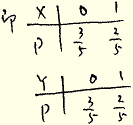 即 X 0 1
P 3/5 2/5
Y 0 1
P 3/5 2/5